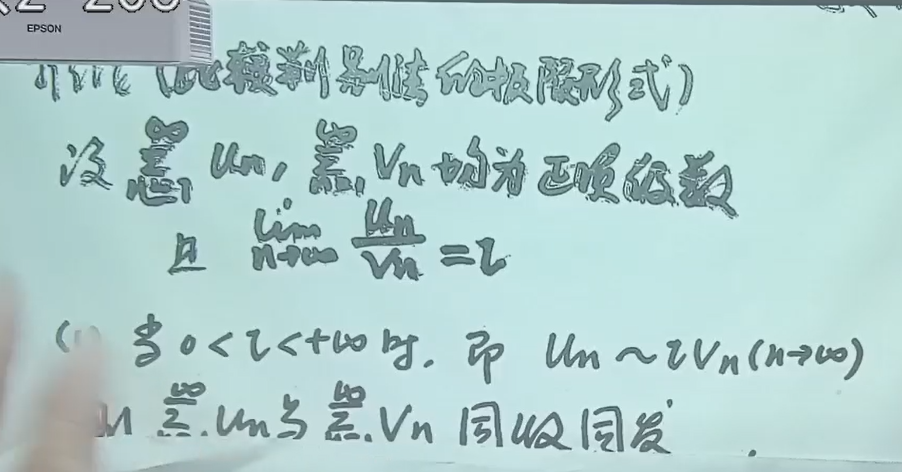 EPSON
(比较判别法的极限形式)
设 ∑_{n=1}^{∞} Un, ∑_{n=1}^{∞} Vn 均为正项级数
且 lim_{n→∞} Un/Vn = l
(1) 当 0<l<+∞ 时, 即 Un ~ lVn (n→∞)
则 ∑^{∞} Un 与 ∑^{∞} Vn 同收同发.